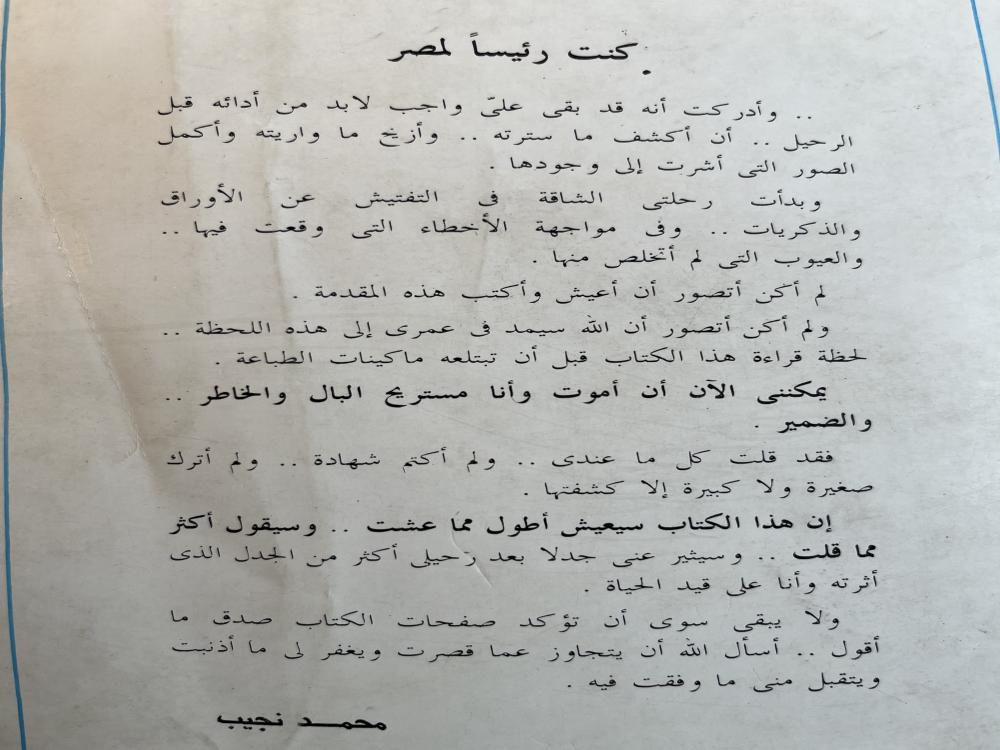 كنت رئيساً لمصر
.. وأدركت أنه قد بقى علىّ واجب لابد من أدائه قبل
الرحيل .. أن أكشف ما سترته .. وأزيح ما واريته وأكمل
الصور التى أشرت إلى وجودها .
وبدأت رحلتى الشاقة فى التفتيش عن الأوراق
والذكريات .. وفى مواجهة الأخطاء التى وقعت فيها ..
والعيوب التى لم أتخلص منها .
لم أكن أتصور أن أعيش وأكتب هذه المقدمة .
ولم أكن أتصور أن الله سيمد فى عمرى إلى هذه اللحظة ..
لحظة قراءة هذا الكتاب قبل أن تبتلعه ماكينات الطباعة .
يمكننى الآن أن أموت وأنا مستريح البال والخاطر ..
والضمير .
فقد قلت كل ما عندى .. ولم أكتم شهادة .. ولم أترك
صغيرة ولا كبيرة إلا كشفتها .
إن هذا الكتاب سيعيش أطول مما عشت .. وسيقول أكثر
مما قلت .. وسيثير عنى جدلا بعد رحيلى أكثر من الجدل الذى
أثرته وأنا على قيد الحياة .
ولا يبقى سوى أن تؤكد صفحات الكتاب صدق ما
أقول .. أسأل الله أن يتجاوز عما قصرت ويغفر لى ما أذنبت
ويتقبل منى ما وفقت فيه .
محمد نجيب